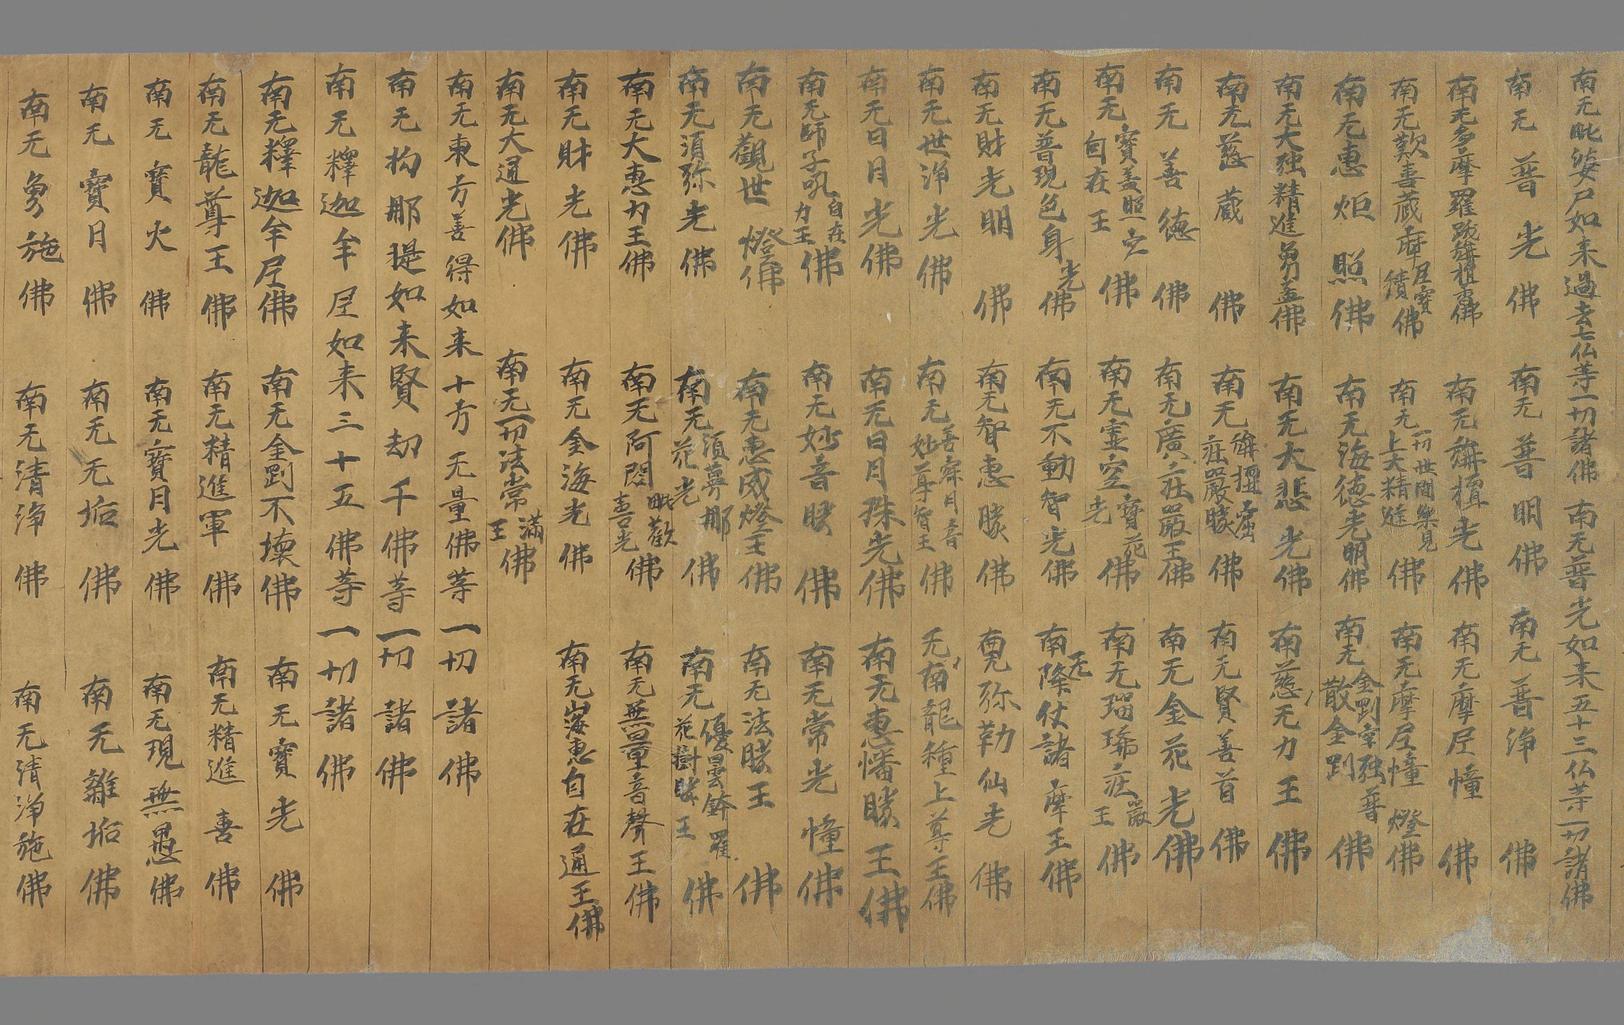 南无毗婆尸如来過去七仏等一切諸佛 南无普光如来五十三仏等一切諸佛
南无普光佛 南无普明佛 南无普浄佛
南无多摩羅跋旃檀香佛 南无旃檀光佛 南无摩尼幢佛
南无歎喜蔵摩尼寶積佛 南无一切世間樂見上大精進佛 南无摩尼幢燈佛
南无惠炬照佛 南无海德光明佛 南无金剛牢强普散金剛佛
南无大强精進勇盖佛 南无大悲光佛 南慈无力王佛
南无慈蔵佛 南无旃檀窟庄嚴勝佛 南无賢善首佛
南无善德佛 南无廣庄嚴王佛 南无金花光佛
南无寶盖照空自在王佛 南无虚空寶花光佛 南无瑠璃庄嚴王佛
南无普現色身光佛 南无不動智光佛 南无降仗諸摩王佛
南无財光明佛 南无智惠勝佛 南无弥勒仙光佛
南无世浄光佛 南无善寂月音妙尊智王佛 无南龍種上尊王佛
南无日月光佛 南无日月珠光佛 南无惠幡勝王佛
南无師子吼自在力王佛 南无妙音勝佛 南无常光幢佛
南无觀世燈佛 南无惠威燈王佛 南无法勝王佛
南无須弥光佛 南无須蔓那花光佛 南无優曇鉢羅花樹勝王佛
南无大惠力王佛 南无阿閦毗歡喜光佛 南无無量音聲王佛
南无財光佛 南无金海光佛 南无海惠自在通王佛
南无大通光佛 南无一切法常滿王佛
南无東方善得如来十方无量佛等一切諸佛
南无拘那提如来賢劫千佛等一切諸佛
南无釋迦牟尼如来三十五佛等一切諸佛
南无釋迦牟尼佛 南无金剛不壊佛 南无寶光佛
南无龍尊王佛 南无精進軍佛 南无精進善佛
南无寶火佛 南无寶月光佛 南无現無愚佛
南无寶月佛 南无无垢佛 南无離垢佛
南无勇施佛 南无清浄佛 南无清浄施佛